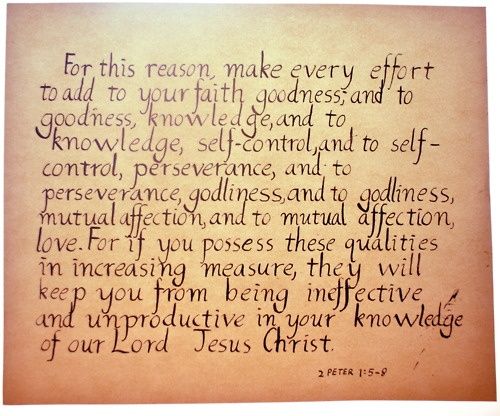 For this reason, make every effort
to add to your faith goodness; and to
goodness, knowledge, and to
knowledge, self-control, and to self-
control, perseverance, and to
perseverance, godliness, and to godliness,
mutual affection, and to mutual affection,
love. For if you possess these qualities
in increasing measure, they will
keep you from being ineffective
and unproductive in your knowledge
of our Lord Jesus Christ.
2 PETER 1:5-8